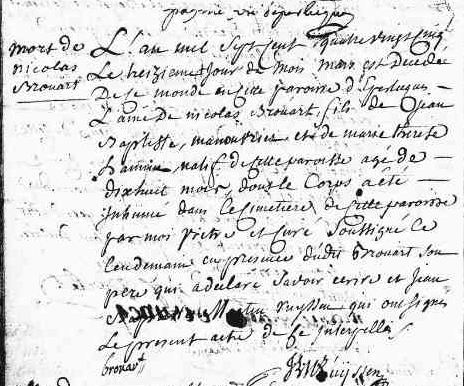 mort de
nicolas
Brouart
L'an mil sept cent quatre vingt cinq
Le treizieme Jour de mois mars est Decedée
De ce monde en cette paroisse d'Eperlecques
L'ame De nicolas Brouart fils de Jean
Baptiste, manouvrier et de marie therese
natif de cette paroisse agé de
dixhuit mois, dont le Corps a été
Inhumé dans le Cimetiere de cette paroisse
par moi pretre et Curé Soussigné le
lendemain en presence dudit Brouart son
pere qui a declaré savoir ecrire et Jean
qui ont signé
Le present acte de ce interpellés
brouart